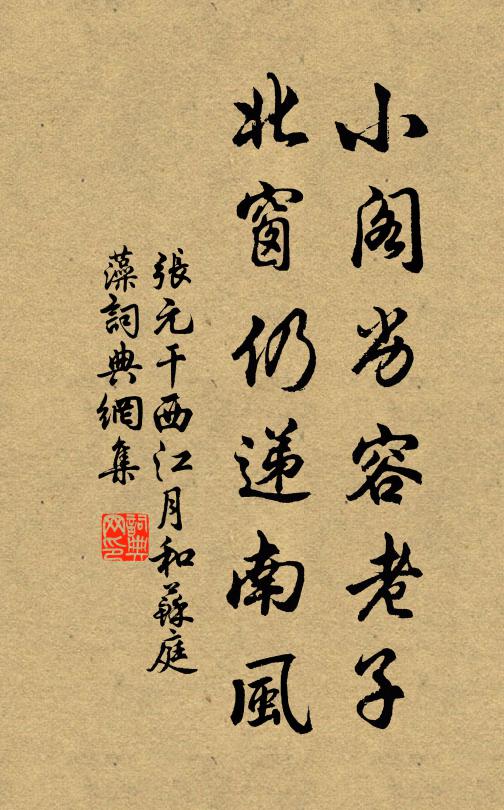 小阁劣容老子
北窗仍递南風
張元干西江月和蘇庭
藻詞典網集
詞典
网印